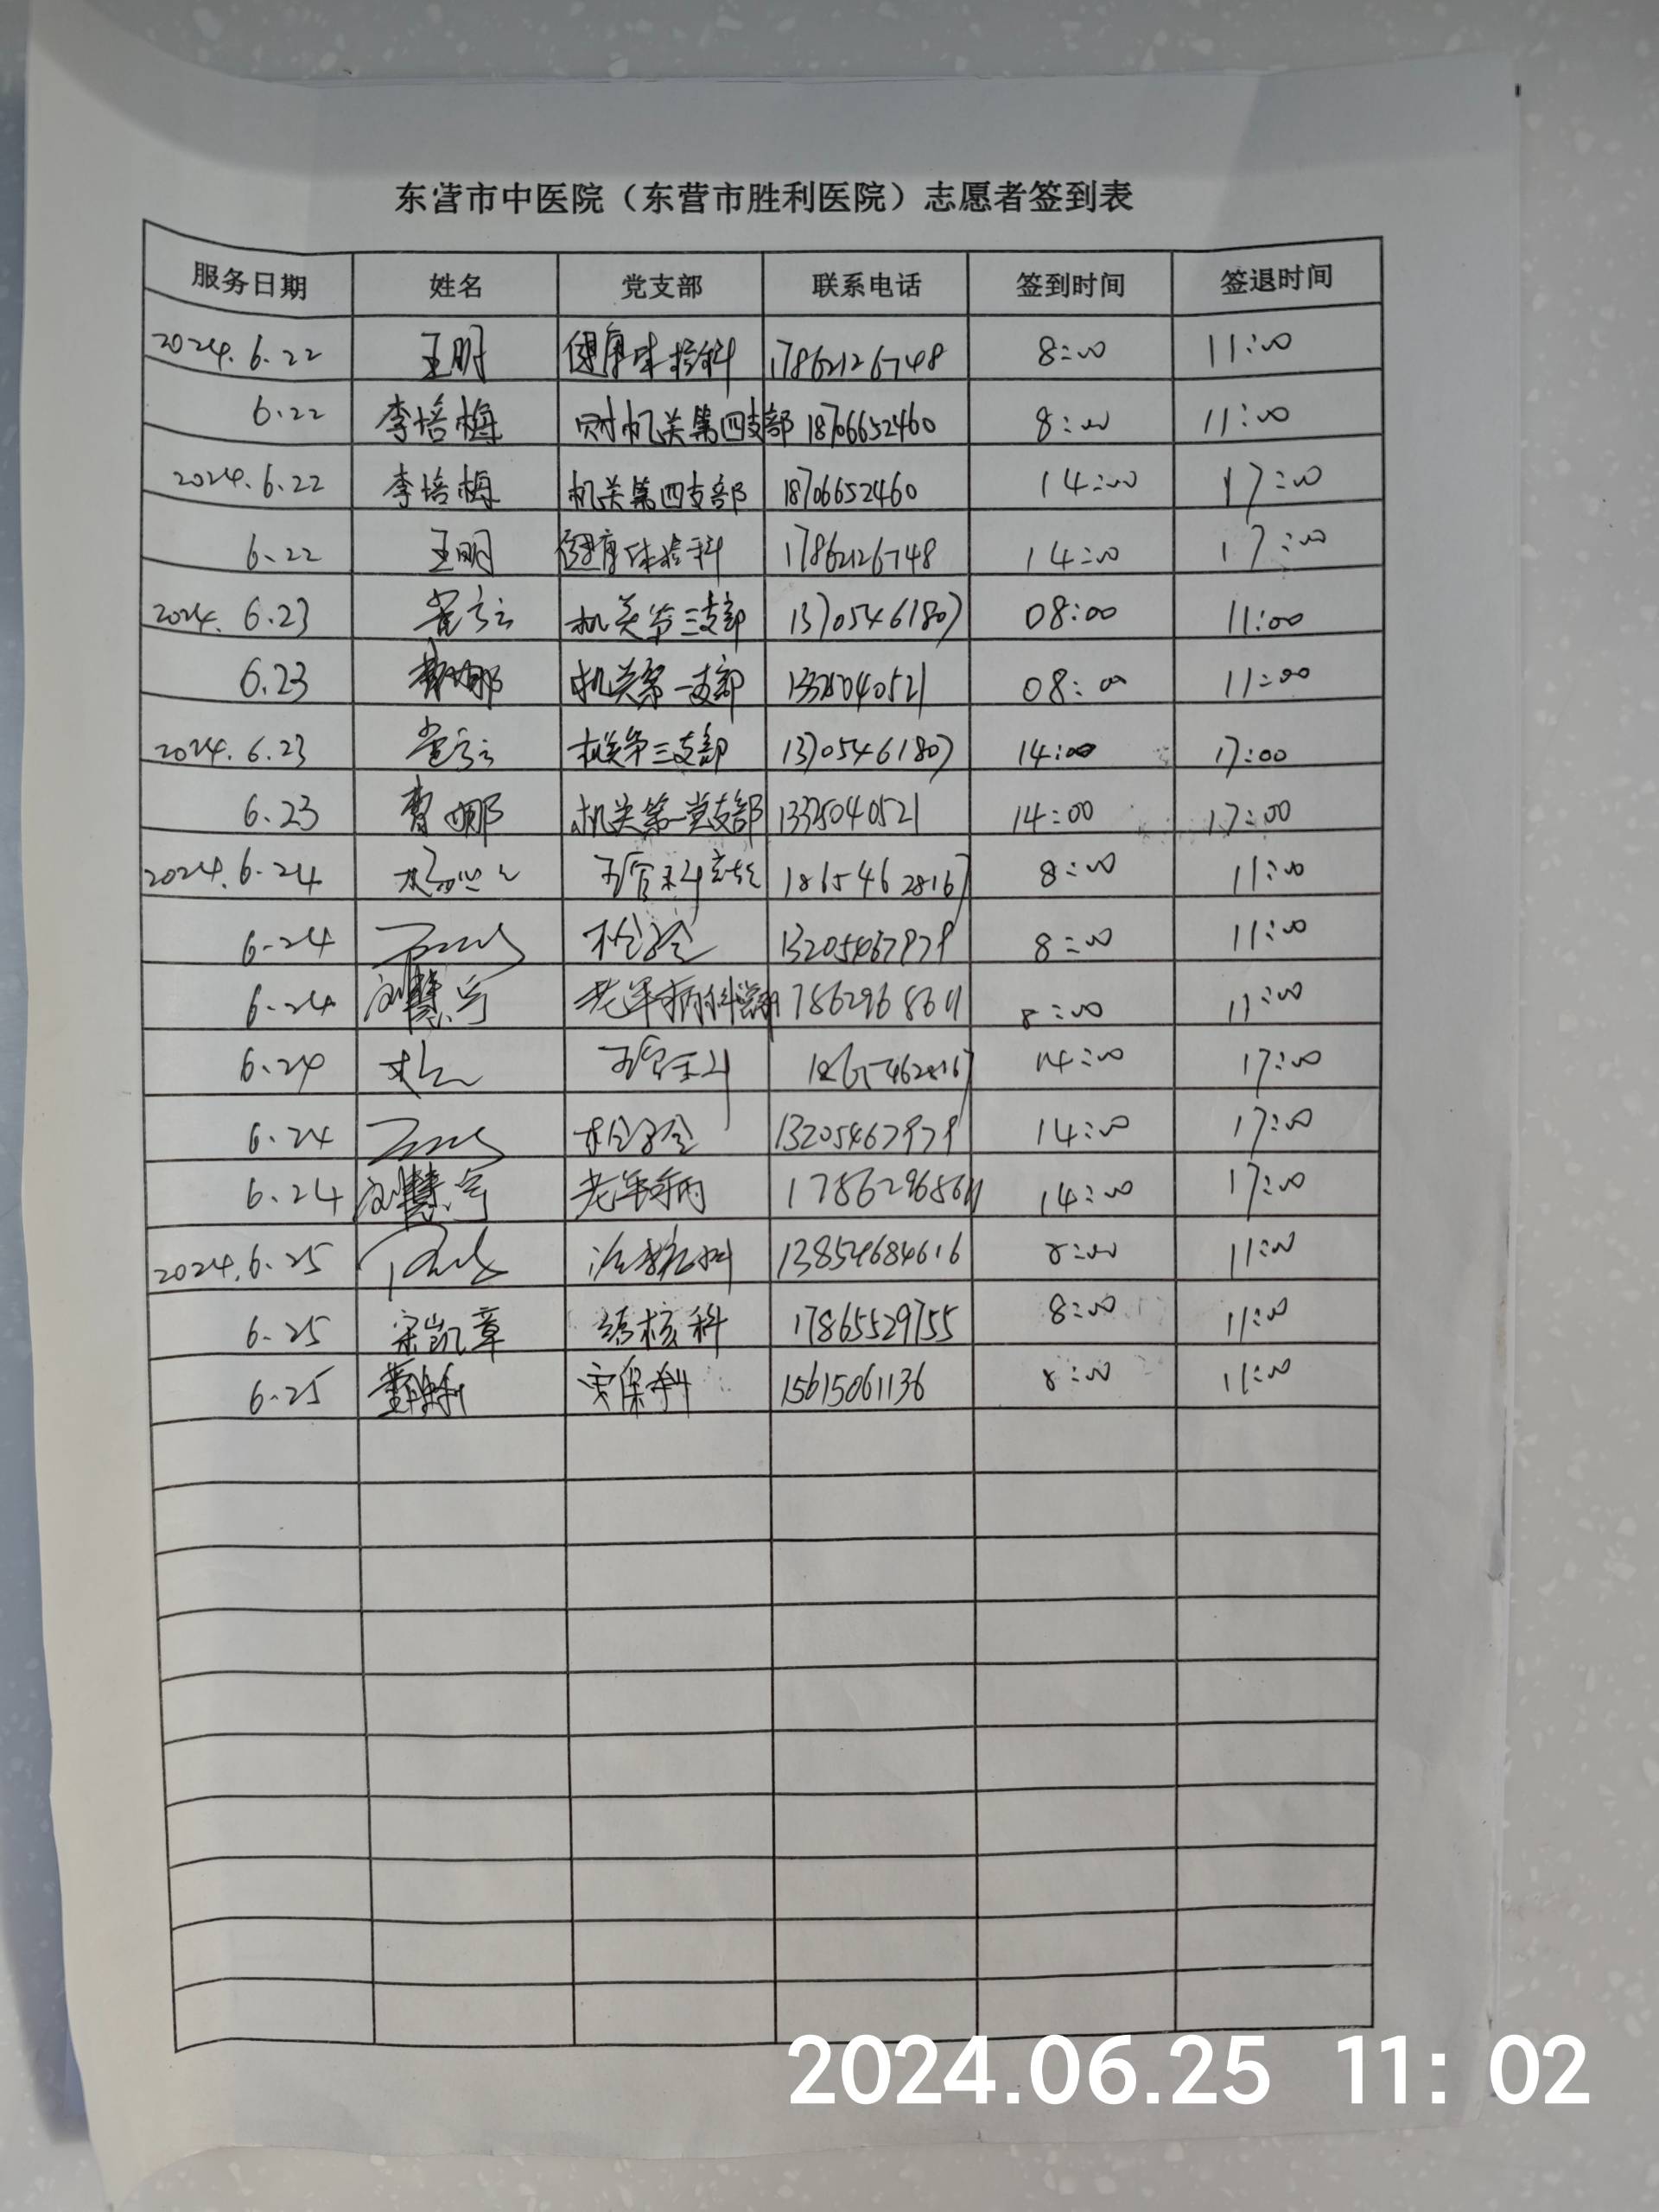 东营市中医院（东营市胜利医院）志愿者签到表
服务日期 姓名 党支部 联系电话 签到时间 签退时间
2024.6.22 王明 健康体检科 17862126748 8:00 11:00
6.22 李培梅 机关第四支部 18706652460 8:00 11:00
2024.6.22 李培梅 机关第四支部 18706652460 14:00 17:00
6.22 王明 健康体检科 17862126748 14:00 17:00
2024.6.23 机关第三支部 13705461807 08:00 11:00
6.23 机关第一支部 13325040521 08:00 11:00
2024.6.23 机关第三支部 13705461807 14:00 17:00
6.23 曹娜 机关第一党支部 13325040521 14:00 17:00
2024.6.24 五官科 18654628167 8:00 11:00
6.24 检验 13205467979 8:00 11:00
6.24 刘慧宁 老年病科 17862968611 8:00 11:00
6.24 五官科 18654628167 14:00 17:00
6.24 检验 13205467979 14:00 17:00
6.24 刘慧宁 老年病 17862968611 14:00 17:00
2024.6.25 13854684616 8:00 11:00
6.25 宋凯章 结核科 17865529755 8:00 11:00
6.25 15615061136 8:00 11:00
2024.06.25 11:02